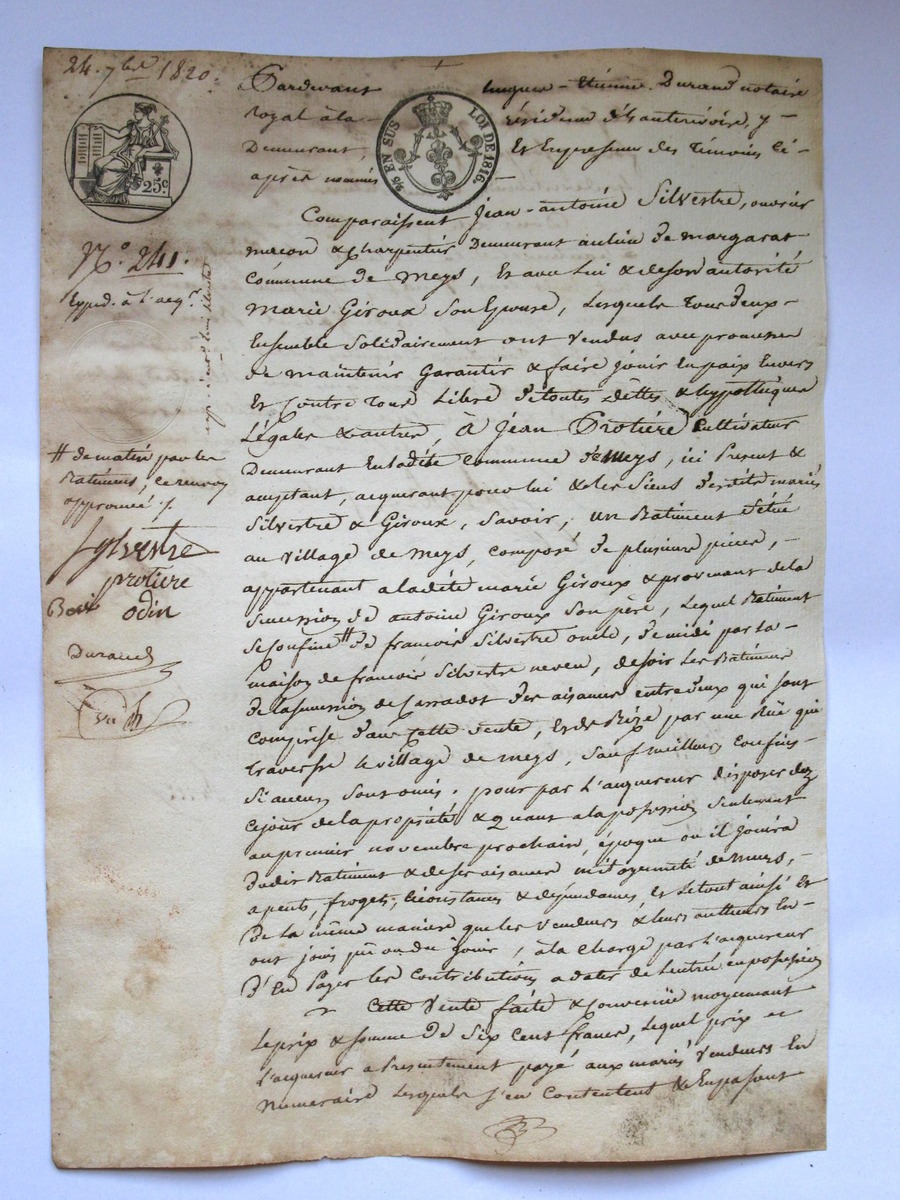 24. 7bre 1820.
25 c
LOI DE 1816.
EN SUS
No. 241.
Exped. à l'acqr.
# de matin par les
Batiments, ce renvoy
approuvé ./.
Sylvestre
protiere
odin
Durand
Pardevant hugues - Etienne Durand notaire
royal à la résidence d'hauterivoire, y
Demeurant, Et En presence des Temoins Ci
après nommés
Comparaissent Jean-antoine Silvestre, ouvrier
macon & charpentier Demeurant au lieu de margarat
Commune de Meys, Et avec Lui & de son autorité
Marie Giroux Son Epouse, Lesquels Tous deux
Ensemble Solidairement ont vendus avec promesse
de maintenir garantir & faire jouir En paix Envers
Et Contre Tous Libre de toutes dettes & hypothèques
Légales & autres, à Jean Protière Cultivateur
Demeurant En la dite Commune de meys, ici Present &
acceptant, acquerant pour lui & les Siens desdits mariés
Silvestre & Giroux, Savoir, un Batiment Situé
au village de Meys, composé de plusieurs pieces,
appartenant a la dite marie Giroux & provenant de la
Succession de antoine Giroux Son père, Lequel Batiment
Se Confine # de francois Silvestre oncle, de midi par la
maison de francois Silvestre neveu, de soir Les Batiments
de la succession de Carradot des aisances entre deux qui sont
comprise dans Cette vente, Et de Bize par une Rue qui
traverse le village de meys, Sauf meilleurs confins
Si aucuns Sont omis. pour par L'acquereur disposer dez
Cejour de la propriété & quant a la possession Seulement
au premier novembre prochain, époque ou il jouira
dudit Batiment & de ses aisances mitoyenneté de murs,
apents, forgets, Circonstances & dépendances, et le tout ainsi Et
De la même manière que les vendeurs & leurs autheurs En
ont joui pu ou du Jouir, à la Charge par L'acquereur
d'En Payer les Contributions a dater de Lentrée en possession
Cette Vente faite & convenue moyennant
Le prix & somme de Six Cent francs, Lequel prix
L'acquereur a Presentement payé aux mariés Vendeurs En
Numeraire Lesquels S'en Contentent & En passent